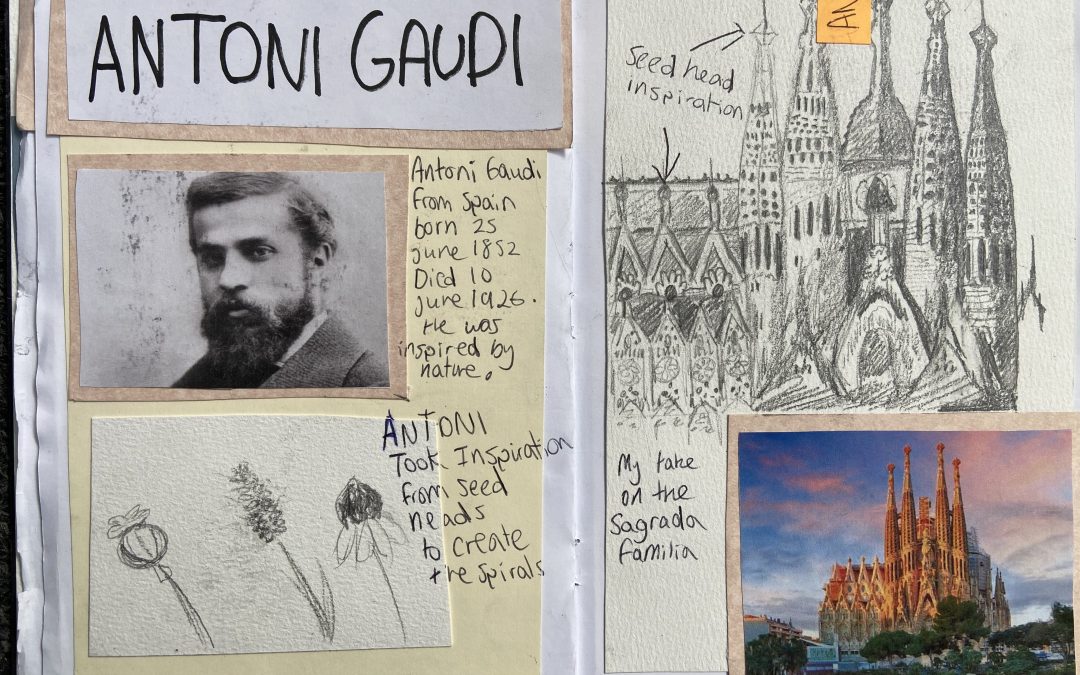 ANTONI GAUDI
Antoni Gaudi
from Spain
born 25
june 1852
Died 10
june 1926.
He was
inspired by
nature.
ANTONI
Took Inspiration
from seed
heads
to create
the spirals
Seed head
inspiration
AN
My take
on the
Sagrada
familia